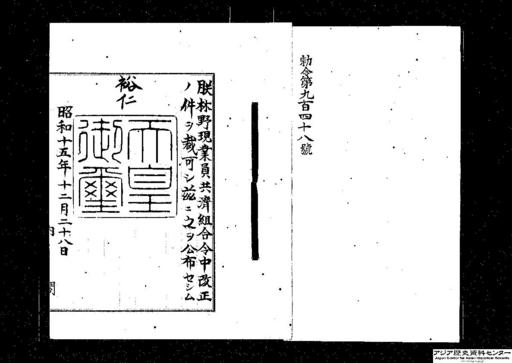 勅令第九百四十八號
朕林野現業員共濟組合令中改正
ノ件ヲ裁可シ茲ニ之ヲ公布セシム
裕仁
天皇
御璽
昭和十五年十二月二十八日
アジア歴史資料センター
Japan Center for Asian Historical Records